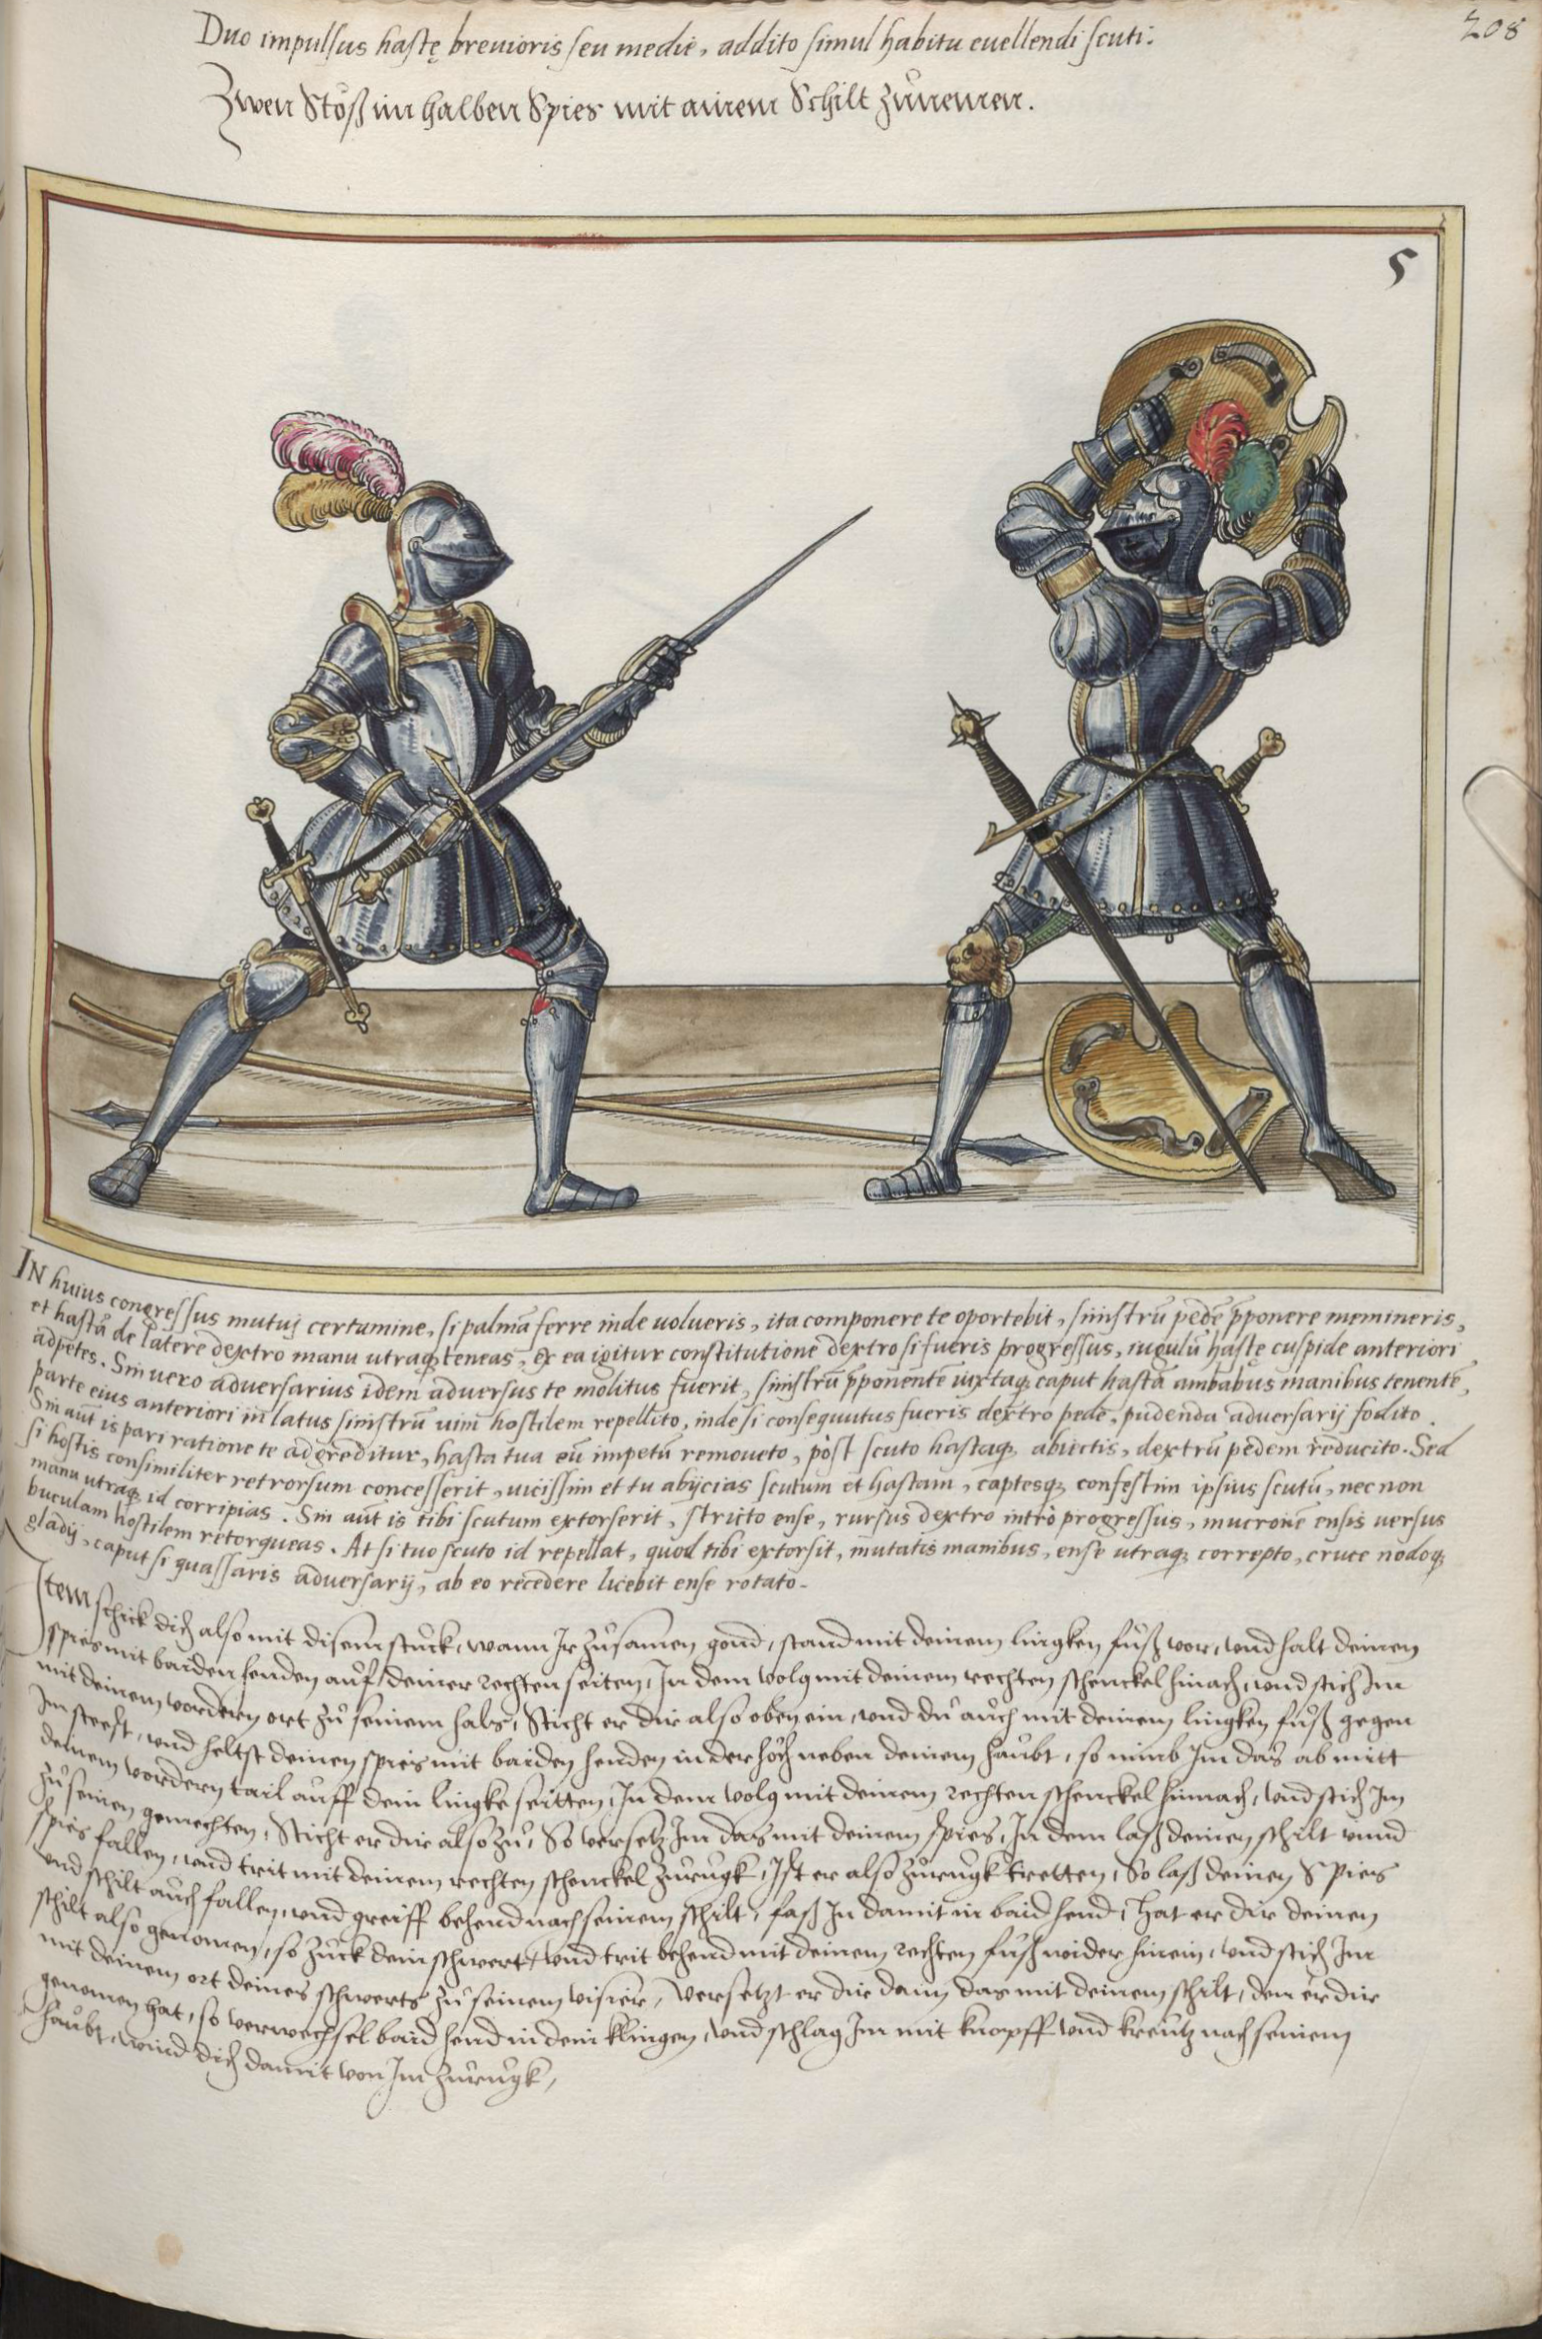 208
Duo impulsus hastę breuioris seu medię, addito simul habitu euellendi scuti.
Zwen Stöß im halben Spies mit ainem Schilt zůnemen.
5
IN huius congressus mutuj certamine, si palmā ferre inde uolueris, ita componere te oportebit, sinistrū pedē p̄ponere memineris,
et hastā de latere dextro manu utraq; teneas, ex ea igitur constitutione dextro si fueris progressus, iugulū hastę cuspide anteriori
adpetes. Sin uero aduersarius idem aduersus te molitus fuerit, sinistrū p̄ponentē iuxtaq; caput hastā ambabus manibus tenentē,
parte eius anteriori in latus sinistrū uim hostilem repellito, inde si consequutus fueris dextro pede, pudenda aduersarij fodito.
Sin aūt is pari ratione te adgreditur, hasta tua eū impetū remoueto, pòst scuto hastaq; abiectis, dextrū pedem reducito. Sed
si hostis consimiliter retrorsum concesserit, uicissim et tu abijcias scutum et hastam, captesq; confestim ipsius scutū, nec non
manu utraq; id corripias. Sin aūt is tibi scutum extorserit, stricto ense, rursus dextro intrò progressus, mucronē ensis uersus
buculam hostilem retorqueas. At si tuo scuto id repellat, quod tibi extorsit, mutatis manibus, ense utraq; correpto, cruce nodoq;
gladij, caput si quassaris aduersarij, ab eo recedere licebit ense rotato.
Item schick dich also mit disem stuck, wann Ir zůsamen gond, stand mit deinem lingken fůß vor, vnd halt deinen
spies mit baiden henden auf deiner rechten seiten, In dem volg mit deinem rechten schenckel hinach, vnd stich Im
mit deinem vordern ort zů seinem hals, Sticht er dir also oben ein, vnd du auch mit deinem lingken fůß gegen
Im steest, vnd heltst deinen spies mit baiden henden in der höch neben deinem haubt, so nimb Im das ab mitt
deinem vordern tail auff dein lingke seitten, In dem volg mit deinem rechten schenckel hinnach, vnd stich Im
zů seinen gemechten, Sticht er dir also zů, So versetz Im das mit deinem spies, In dem laß deinen schilt vnnd
spies fallen, vnd trit mit deinem rechten schenckel zůrugk, Ist er also zůrugk tretten, So laß deinen Spies
vnd schilt auch fallen, vnd greiff behend nach seinem schilt, faß In damit in baid hend, Hat er dir deinen
schilt also genomen, so zuck dein schwert, vnd trit behend mit deinem rechten fůß wider hinein, vnd stich Im
mit deinem ort deines schwerts zů seinem visier, Versetzt er dir dann das mit deinem schilt, den er dir
genomen hat, so verwechsel baid hend in dein klingen, vnd schlag Im mit knopff vnd kreutz nach seinem
haubt, wind dich damit von Im zůrugk,